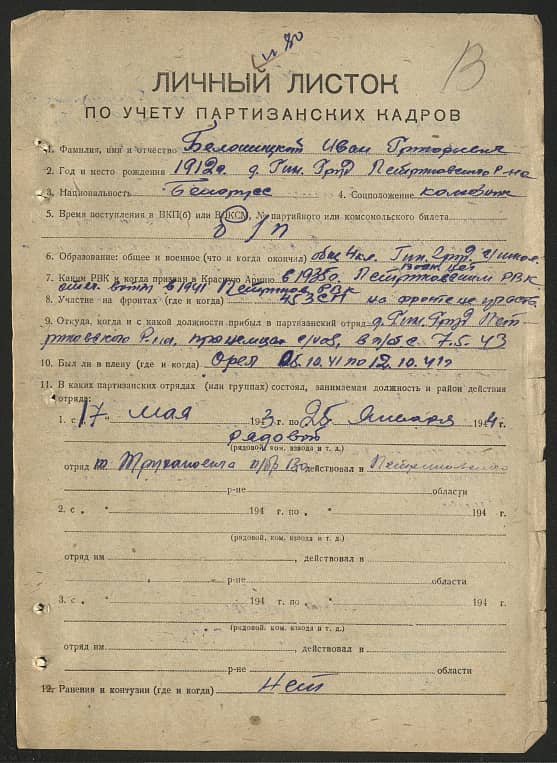 ЛИЧНЫЙ ЛИСТОК
ПО УЧЕТУ ПАРТИЗАНСКИХ КАДРОВ
1. Фамилия, имя и отчество Белошицкий Иван
2. Год и место рождения 1912 г. д. Петриковского р-на
3. Национальность Белорус 4. Соцположение колхозник
5. Время поступления в ВКП(б) или ВЛКСМ, № партийного или комсомольского билета
б/п
6. Образование: общее и военное (что и когда окончил) общ 4 кл.
7. Каким РВК и когда призван в Красную Армию в 1935 г. Петриковским РВК
в 1941 РВК
8. Участие на фронтах (где и когда) 453 СП на фронте не
9. Откуда, когда и с какой должности прибыл в партизанский отряд д.
р-на, с 7.5.43
10. Был ли в плену (где и когда) Орел 06.10.41 по 12.10.41 г
11. В каких партизанских отрядах (или группах) состоял, занимаемая должность и район действия
отряда:
1. с 17 мая 1943 г. по 25 января 1944 г.
рядовой
(рядовой, ком. взвода и т. д.)
отряд действовал в
р-не области
2. с " " 194 г. по " " 194 г.
(рядовой, ком. взвода и т. д.)
отряд им , действовал в
р-не области
3. с " " 194 г. по " " 194 г.
(рядовой, ком. взвода и т. д.)
отряд им , действовал в
р-не области
12. Ранения и контузии (где и когда) нет